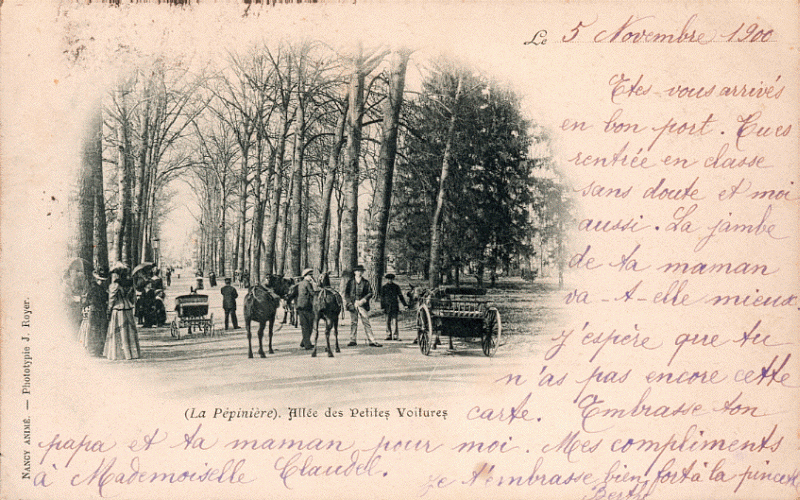 Le 5 Novembre 1900
Etes-vous arrivés
en bon port. Tu es
rentrée en classe
sans doute et moi
aussi. La jambe
de ta maman
va-t-elle mieux.
j'espère que tu
n'as pas encore cette
(La Pépinière). Allée des Petites Voitures
carte. Embrasse ton
papa et ta maman pour moi. Mes compliments
à Mademoiselle Claudel. Je t'embrasse bien fort à la
Berthe
NANCY ANIMÉ. — Phototypie J. Royer.